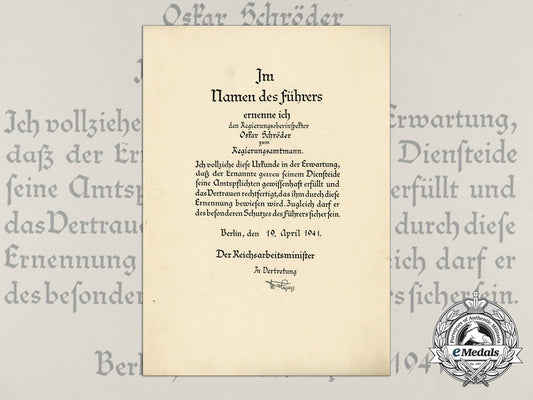 Im
Namen des Führers
ernenne ich
den Regierungsoberinspektor
Oskar Schröder
zum
Regierungsamtmann.
Ich vollziehe diese Urkunde in der Erwartung,
daß der Ernannte getreu seinem Diensteide
seine Amtspflichten gewissenhaft erfüllt und
das Vertrauen rechtfertigt, das ihm durch diese
Ernennung bewiesen wird. Zugleich darf er
des besonderen Schutzes des Führers sicher sein.
Berlin, den 19. April 1941.
Der Reichsarbeitsminister
In Vertretung
Oskar Schröder
Ich vollziehe
Erwartung,
daß der Er
Diensteide
seine Amtspf
erfüllt und
das Vertraue
durch diese
Ernennung
h darf er
des besonder
s sicher sein.
Berl
1941.
eMedals